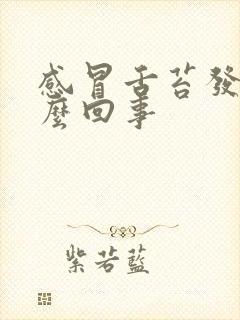 感冒舌苔發
麼回事
紫若藍